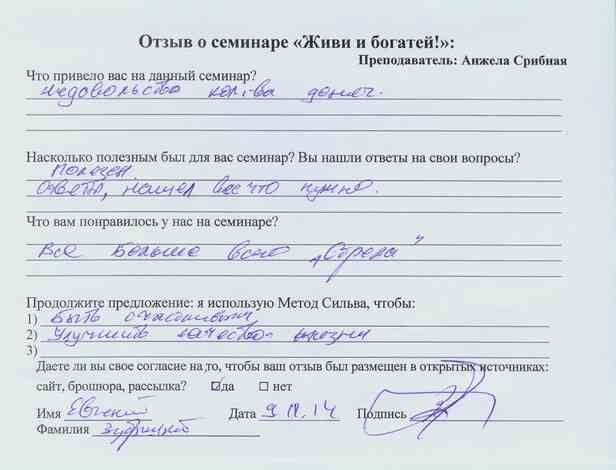 Отзыв о семинаре «Живи и богатей!»:
Преподаватель: Анжела Срибная
Что привело вас на данный семинар?
недовольство кол-ва денег.
Насколько полезным был для вас семинар? Вы нашли ответы на свои вопросы?
Полезен.
Ответы, нашел все что нужно.
Что вам понравилось у нас на семинаре?
Все больше всего „Стрелы"
Продолжите предложение: я использую Метод Сильва, чтобы:
1) Быть счастливым
2) Улучшить качество жизни
3)
Даете ли вы свое согласие на то, чтобы ваш отзыв был размещен в открытых источниках:
сайт, брошюра, рассылка? ☑да ☐ нет
Имя Евгений Дата 9.11.14 Подпись
Фамилия